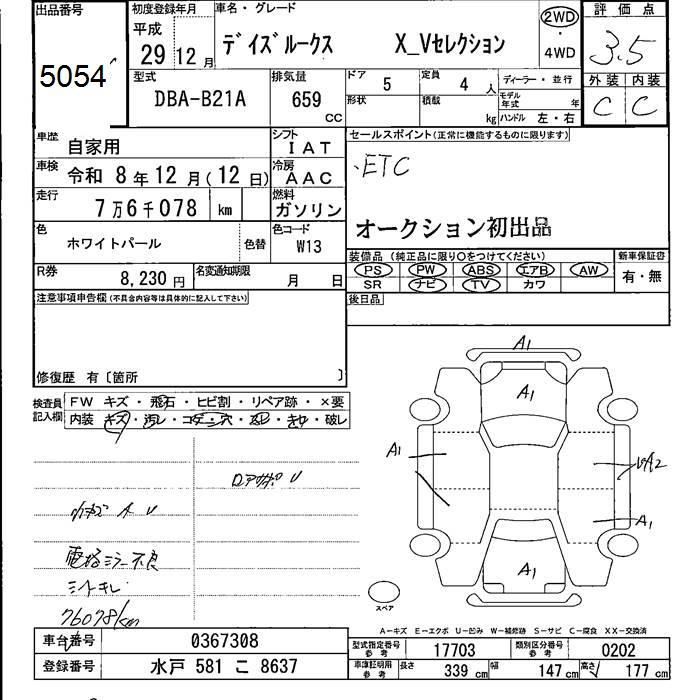 出品番号
5054
初度登録年月
平成
29 12 月
車名・グレード
デイズルークス X_Vセレクション
2WD
・
4WD
評価点
3.5
外装 内装
C C
型式
DBA-B21A
排気量
659
CC
ドア
5
定員
4 人
ディーラー・並行
形状
積載
kg
モデル年式
年
ハンドル 左・右
車歴
自家用
シフト
IAT
車検
令和 8 年 12 月 (12 日)
冷房
AAC
走行
7万6千078 km
燃料
ガソリン
色
ホワイトパール
色替
色コード
W13
R券
8,230 円
名変通知期限
月 日
セールスポイント(正常に機能するものに限ります)
、ETC
オークション初出品
装備品(純正品に限り○をつけてください)
PS PW ABS エアB AW
SR ナビ TV カワ
新車保証書
有・無
後日品
注意事項申告欄(不具合内容等は具体的に記入して下さい)
修復歴 有〔箇所 〕
検査員記入欄
FW キズ・飛石・ヒビ割・リペア跡・×要
内装 キズ・汚レ・コゲ・穴・スレ・キレ・破レ
ロアサポ U
電格ミラー不良
シートキレ
76078km
A1
A1
A1
A2
A1
A1
スペア
A-キズ E-エクボ U-凹み W-補修跡 S-サビ C-腐食 XX-交換済
車台番号
0367308
登録番号
水戸 581 こ 8637
型式指定番号
参考
17703
類別区分番号
参考
0202
車庫証明用
参考
長さ 339 cm 幅 147 cm 高さ 177 cm